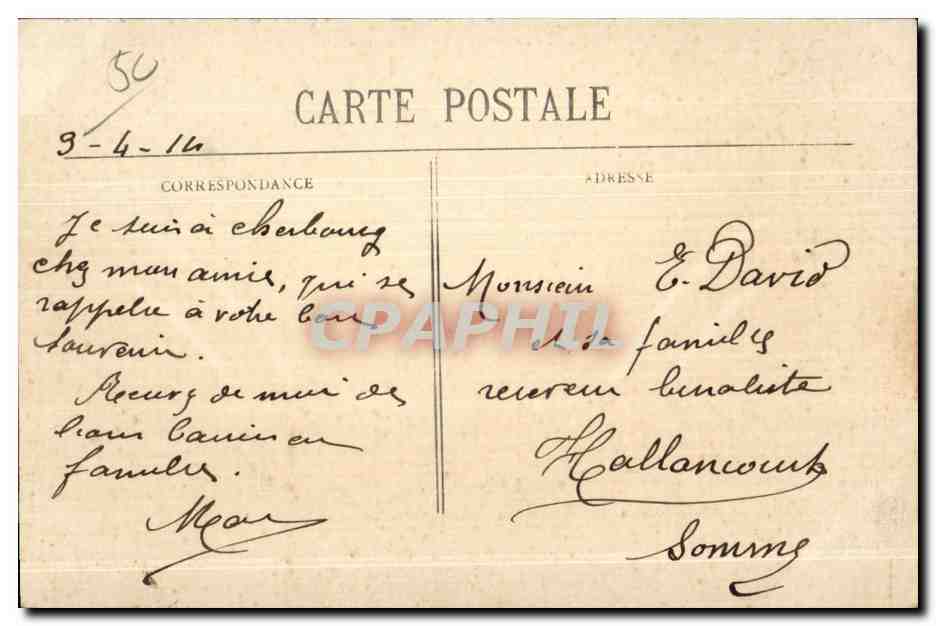 50
CARTE POSTALE
9-4-14
CORRESPONDANCE
Je suis à Cherbourg
chez mon amie, qui se
rappelle à votre bon
souvenir.
Recevez de moi de
bons baisers en
famille.
ADRESSE
Monsieur E. David
et sa famille
receveur buraliste
Hallancourt
Somme
CPAPHIL